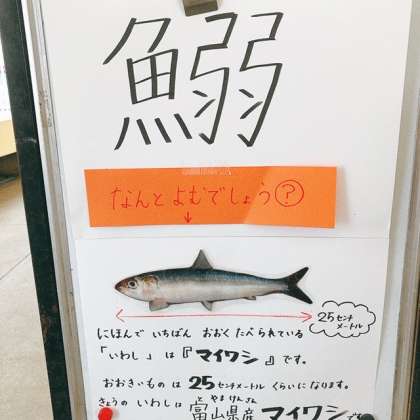 鰯
なんとよむでしょう?
↓
25センチ
メートル
にほんで いちばん おおく たべられている
「いわし」は『マイワシ』です。
おおきいものは 25センチメートル くらいになります。
きょうの いわしは 富山県産 マイワシで
とやまけんさん